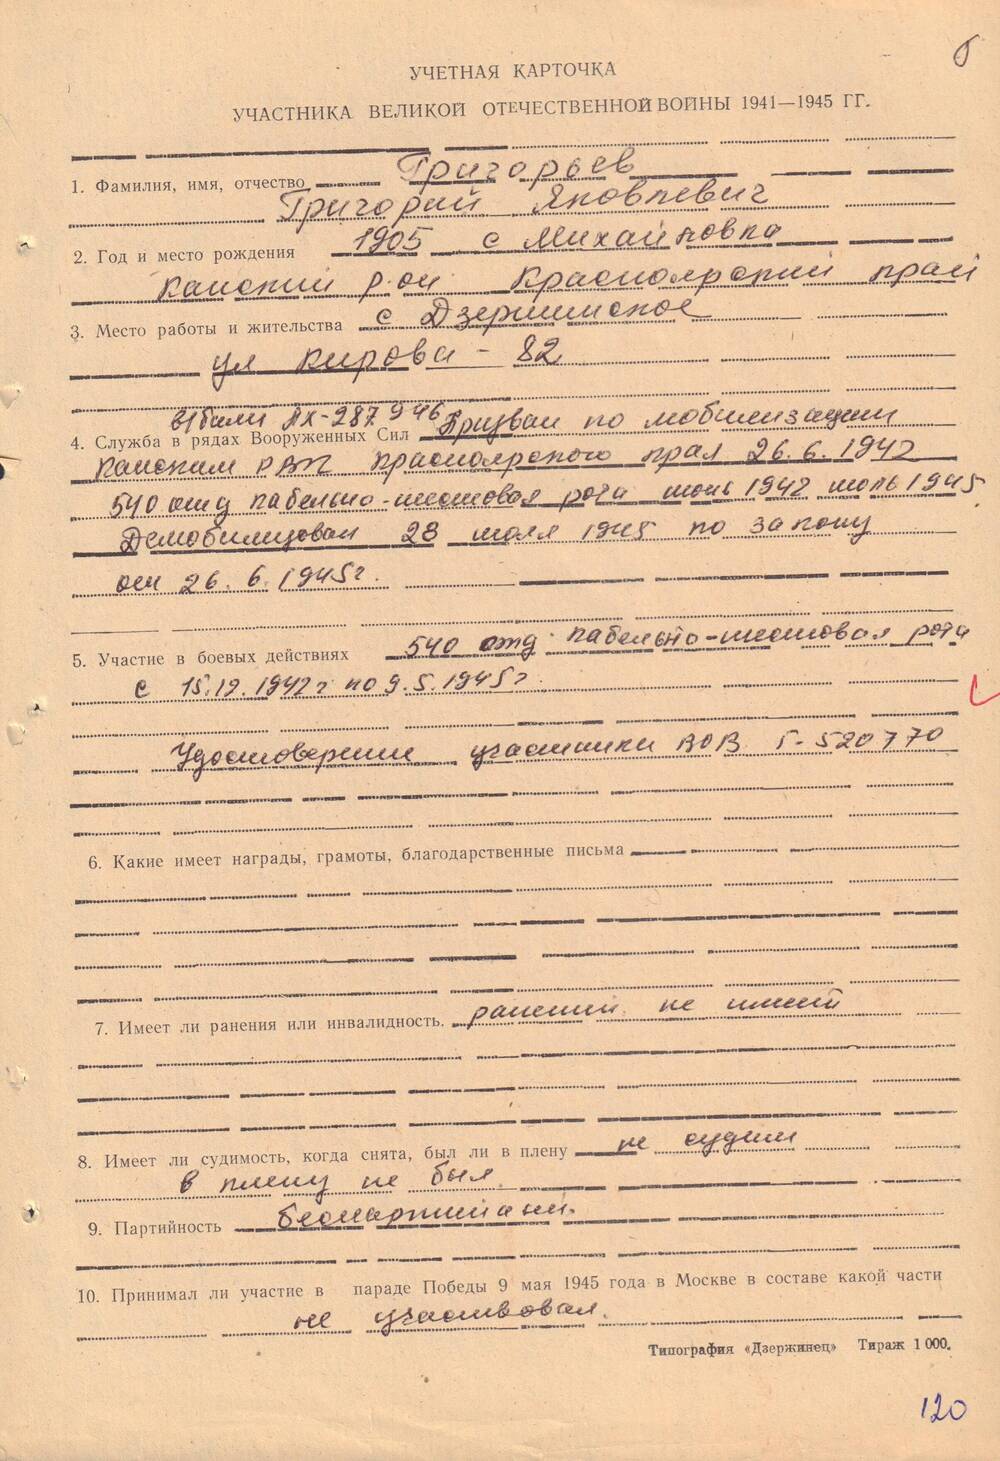 б
УЧЕТНАЯ КАРТОЧКА
УЧАСТНИКА ВЕЛИКОЙ ОТЕЧЕСТВЕННОЙ ВОЙНЫ 1941—1945 ГГ.
1. Фамилия, имя, отчество Григорьев
Григорий Яковлевич
2. Год и место рождения 1905 с Михайловка
Канский р-он Красноярский край
3. Место работы и жительства с Дзержинское
ул Кирова - 82
в/билет ЛК-287946
4. Служба в рядах Вооруженных Сил Призван по мобилизации
Канским РВК Красноярского края 26.6.1942
540 отд кабельно-шестовая рота июнь 1942 июль 1945
Демобилизован 28 июля 1945 по закону
от 26.6.1945 г.
5. Участие в боевых действиях 540 отд кабельно-шестовая рота
с 15.12.1942 г по 9.5.1945 г.
Удостоверение участника ВОВ Г-520770
6. Какие имеет награды, грамоты, благодарственные письма
7. Имеет ли ранения или инвалидность. ранений не имеет
8. Имеет ли судимость, когда снята, был ли в плену не судим
в плену не был.
9. Партийность беспартийный.
10. Принимал ли участие в параде Победы 9 мая 1945 года в Москве в составе какой части
не участвовал.
Типография «Дзержинец» Тираж 1 000.
120